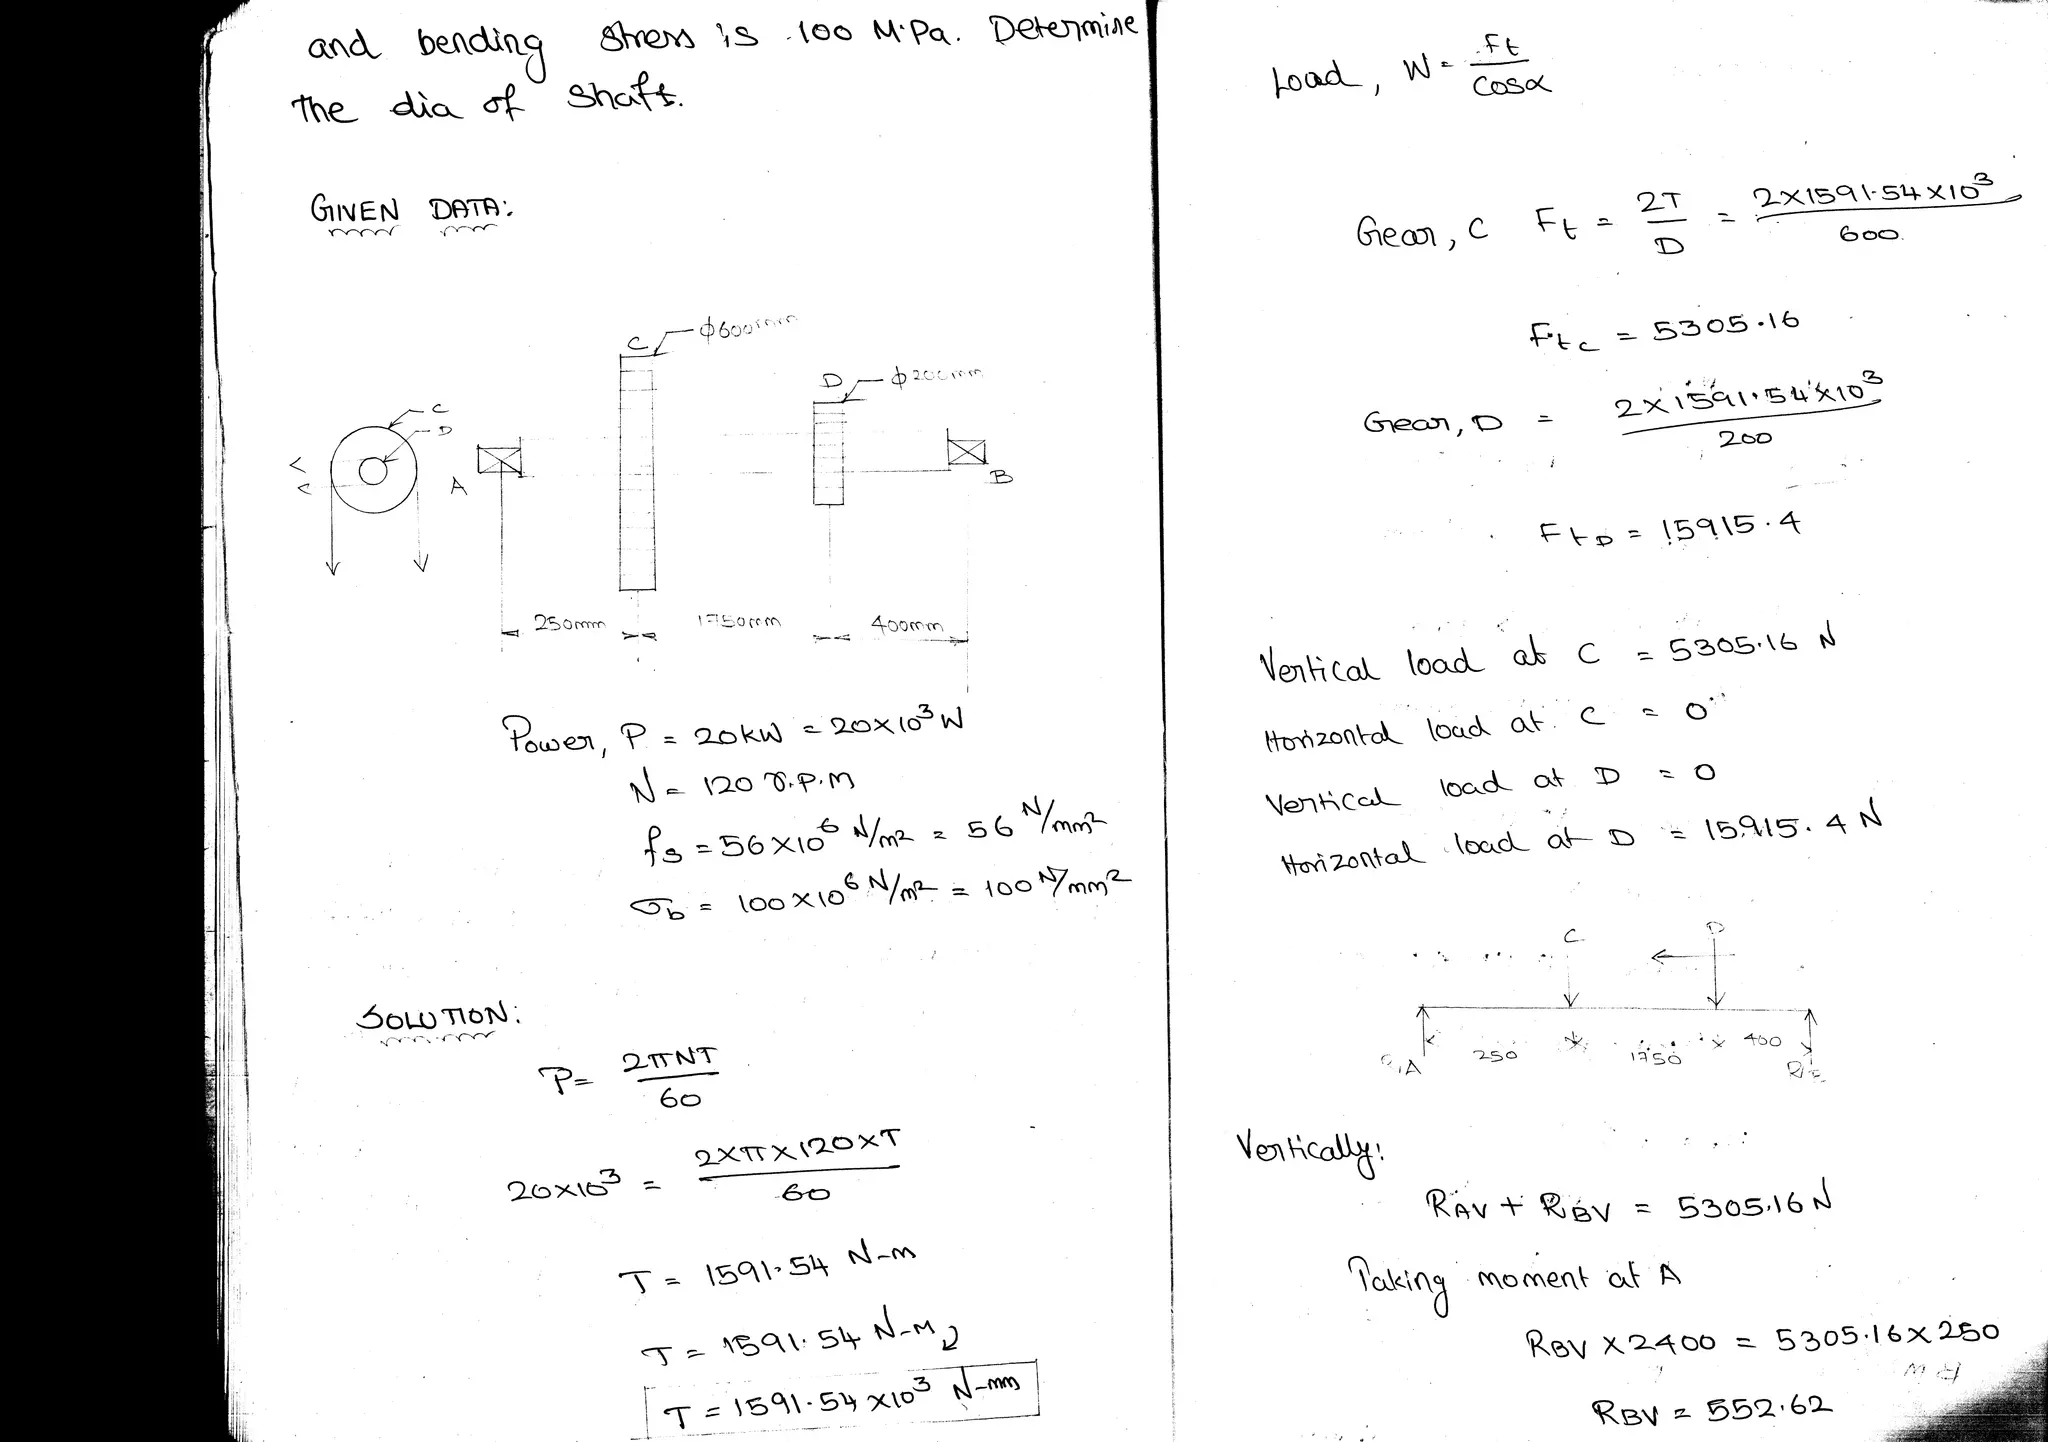 and bending stress is 100 M.Pa. Determine
the dia of shaft.
GIVEN DATA:
C ϕ600mm
D ϕ200mm
C
D
A
B
250mm 1750mm 400mm
Power, P = 20kW = 20×10³ W
N = 120 r.p.m
fs = 56×10⁶ N/m² = 56 N/mm²
σb = 100×10⁶ N/m² = 100 N/mm²
SOLUTION:
P = 2πNT / 60
20×10³ = 2×π×120×T / 60
T = 1591.54 N-m
T = 1591.54 N-M
T = 1591.54 ×10³ N-mm
Load, W = Ft / Cosα
Gear, C Ft = 2T / D = 2×1591.54×10³ / 600
Ftc = 5305.16
Gear, D = 2×1591.54×10³ / 200
FtD = 15915.4
Vertical load at C = 5305.16 N
Horizontal load at C = 0
Vertical load at D = 0
Horizontal load at D = 15915.4 N
C D
250 1750 400
A
Vertically:
RAV + RBV = 5305.16 N
Taking moment at A
RBV × 2400 = 5305.16 × 250
RBV = 552.62